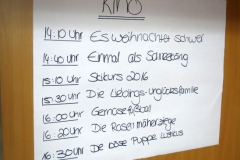 KINO
14:10 Uhr Es weihnachtet schwer
14:40 Uhr Einmal als
15:10 Uhr Skikurs 2016
15:30 Uhr Die Lieblings-unglücksfamilie
16:00 Uhr Gemüsefußball
16:20 Uhr Die Rasenmähersiege
16:30 Uhr Die böse Puppe